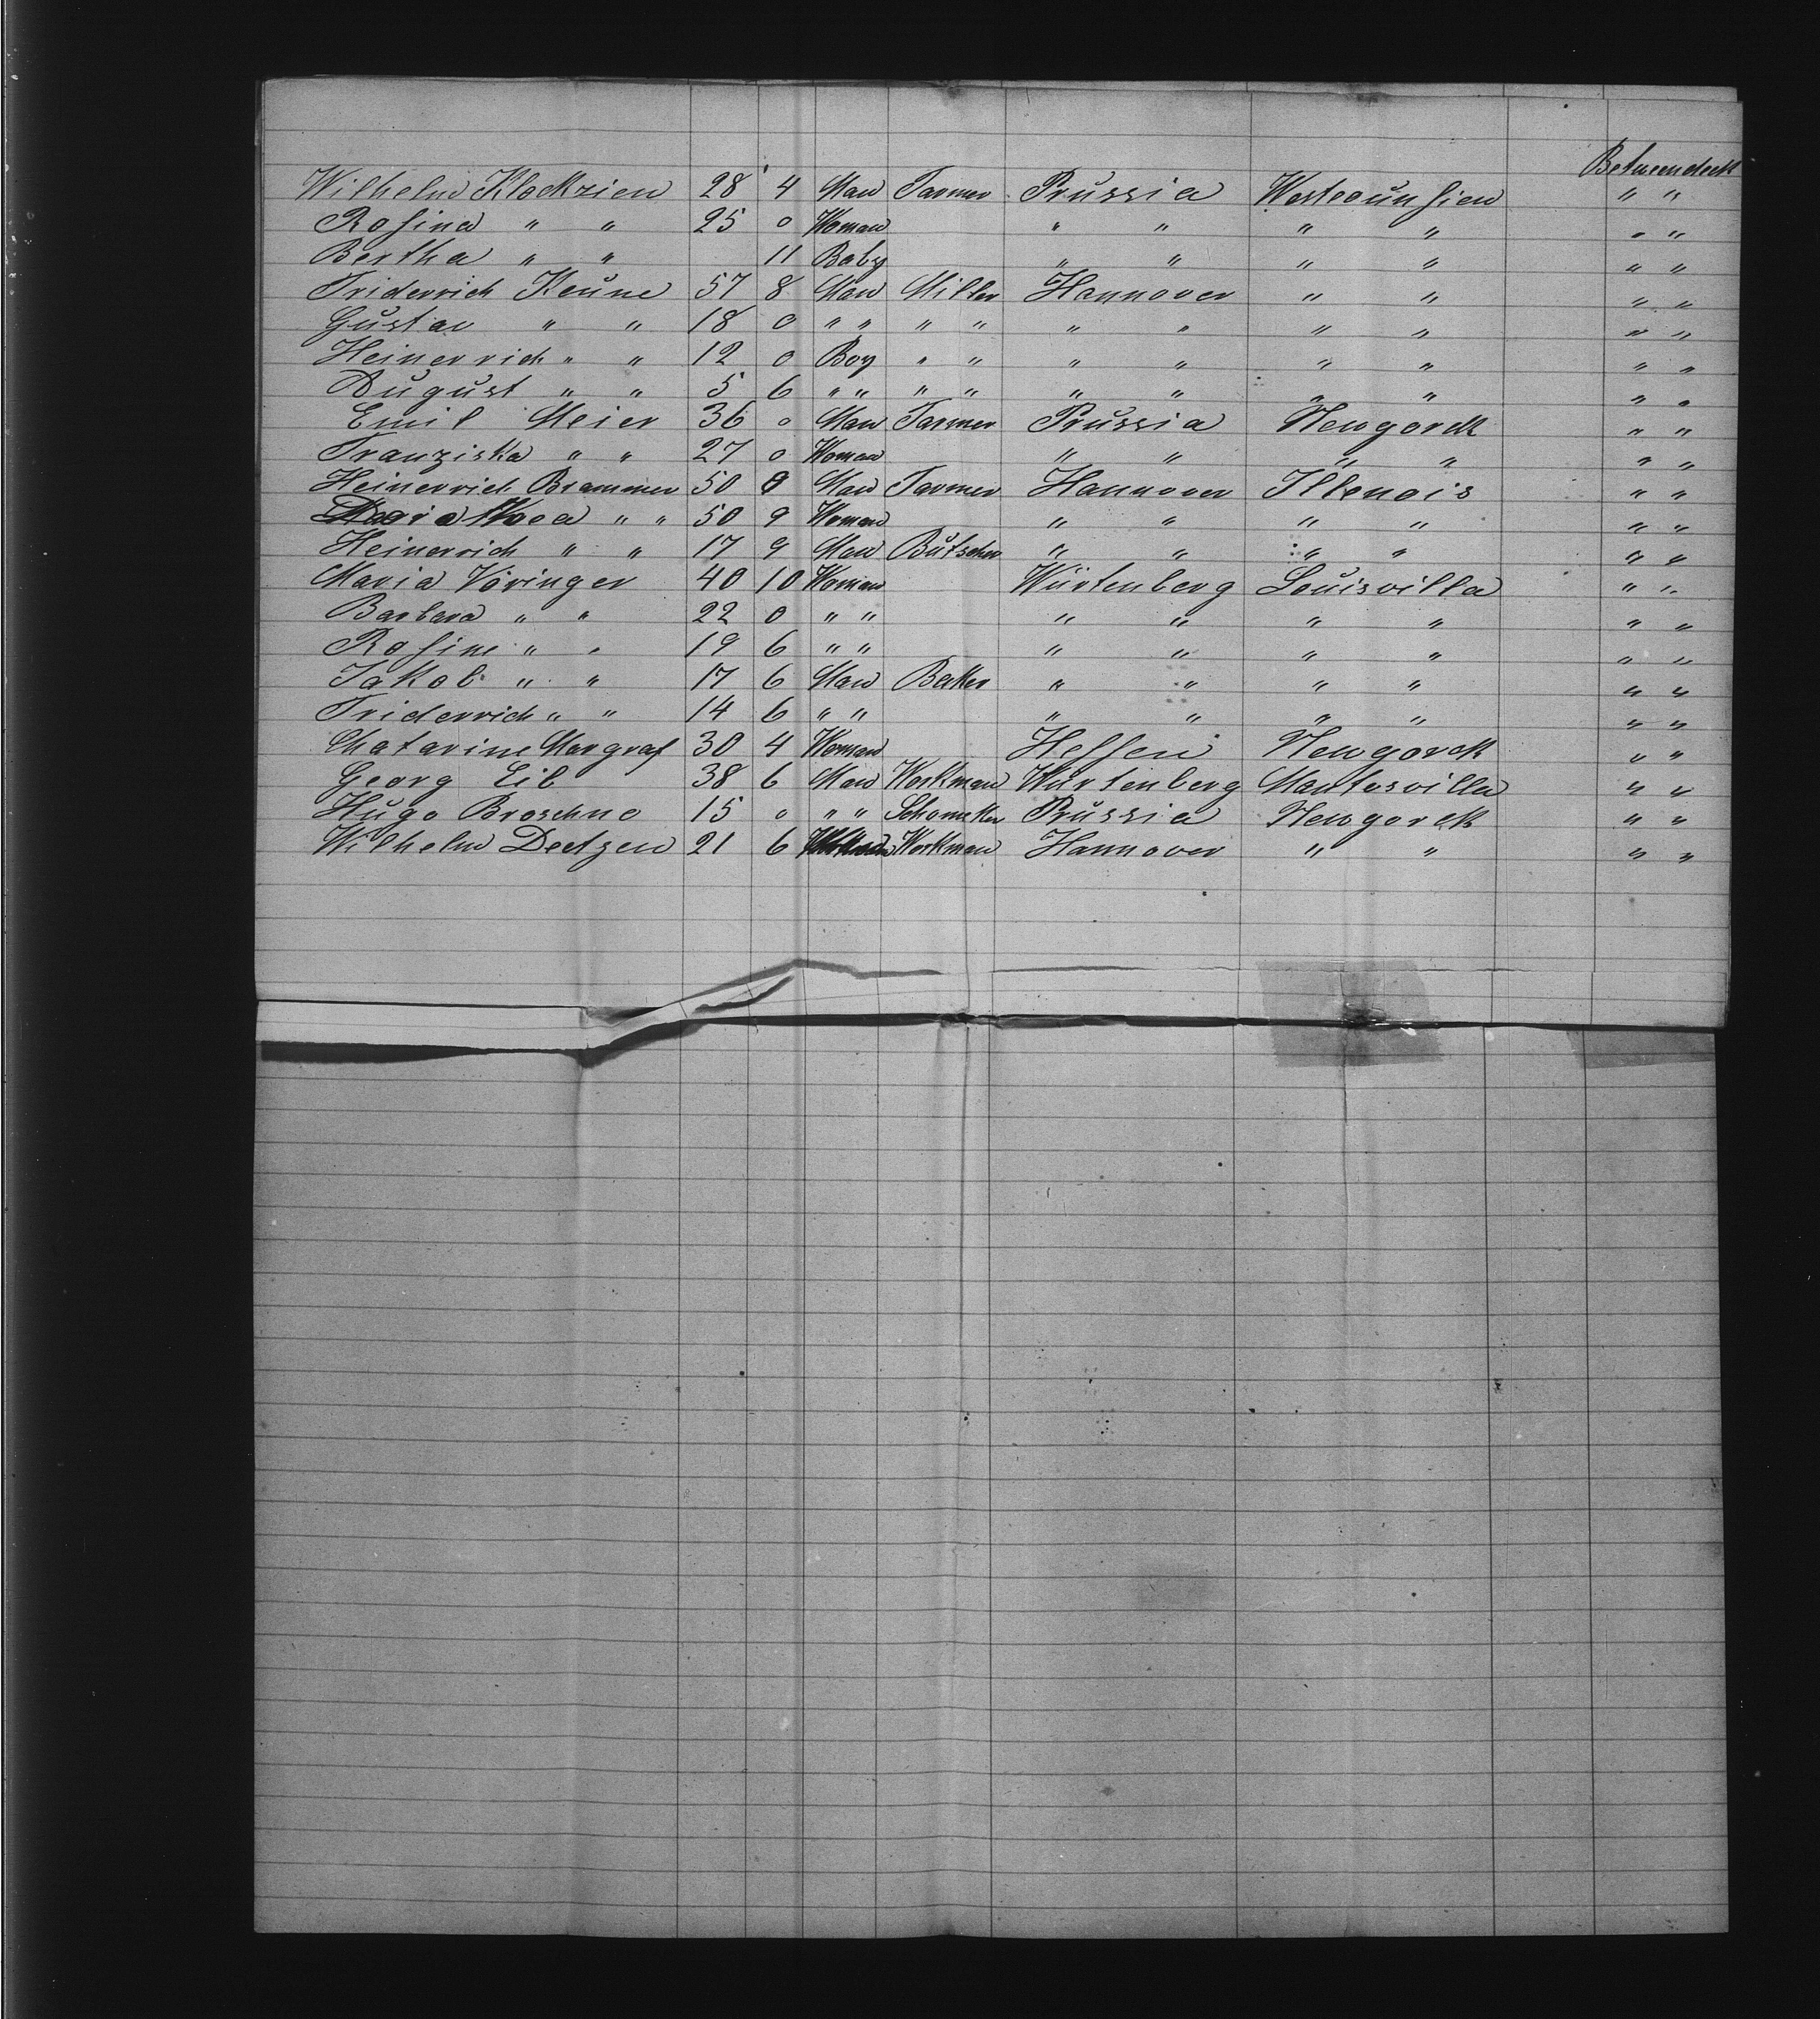 Betweendeck
Wilhelm Klockzien 28 4 Man Farmer Prussia Westcounsien " "
Rosina " " 25 0 Woman " " " " " "
Bertha " " 11 Baby " " " " " "
Friderrich Keune 57 8 Man Miller Hannover " " " "
Gustav " " 18 0 " " " " " " " " " "
Heinerrich " " 12 0 Boy " " " " " " " "
August " " 5 6 " " " " " " " " " "
Emil Meier 36 0 Man Farmer Prussia Newyorck " "
Franziska " " 27 0 Woman " " " " " "
Heinerrich Brammer 50 0 Man Farmer Hannover Illenois " "
" " 50 9 Woman " " " " " "
Heinerrich " " 17 9 Man Butscher " " " " " "
Maria Vöringer 40 10 Woman Würtenberg Louisvilla " "
Barbara " " 22 0 " " " " " " " "
Rosine " " 19 6 " " " " " " " "
Jakob " " 17 6 Man Becker " " " " " "
Friderrich " " 14 6 " " " " " " " "
Chatarine Margraf 30 4 Woman Hessen Newyorck " "
Georg Eib 38 6 Man Workman Würtenberg Mantesvilla " "
Hugo Broschno 15 0 " " Schomeker Prussia Newyorck " "
Wilhelm Deetzen 21 6 Workman Hannover " " " "